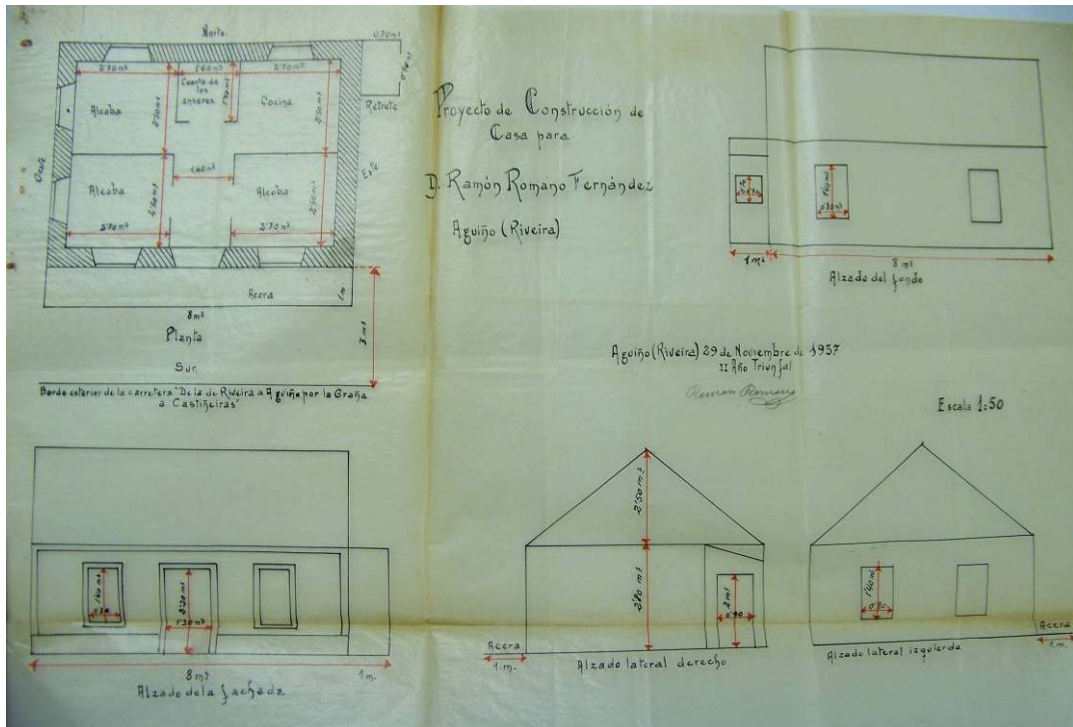 Norte.
0.70 mᵗˢ
2'70 mᵗˢ
1'60 mᵗˢ
2'70 mᵗˢ
Alcoba
Cuarto de
los
Cocina
2'50 mᵗˢ
2'50 mᵗˢ
Retrete
Oeste
Este
1,60 mᵗˢ
Alcoba
Alcoba
2'50 mᵗˢ
2'50 mᵗˢ
2'70 mᵗˢ
2'70 mᵗˢ
Acera
1 m.
8 mᵗˢ
3 mᵗˢ
Planta
Sur.
Borde exterior de la carretera "De la de Riveira a Aguiño por la Graña
a Castiñeiras"
Proyecto de Construcción de
Casa para
D. Ramón Romano Fernández
Aguiño (Riveira)
1'40 mᵗˢ
0'80 mᵗˢ
1 mᵗˢ
8 mᵗˢ
Alzado del fondo
Aguiño (Riveira) 29 de Noviembre de 1937
II Año Triunfal
Ramon Romano
Escala 1:50
1'40 mᵗˢ
0'80
2'20 mᵗˢ
1'30 mᵗˢ
8 mᵗˢ
1 m.
Alzado de la fachada
2'50 mᵗˢ
2'80 mᵗˢ
2 mᵗˢ
0'90
Acera
1 m.
Alzado lateral derecho
1'40 mᵗˢ
0'80
Acera
1 m.
Alzado lateral izquierda